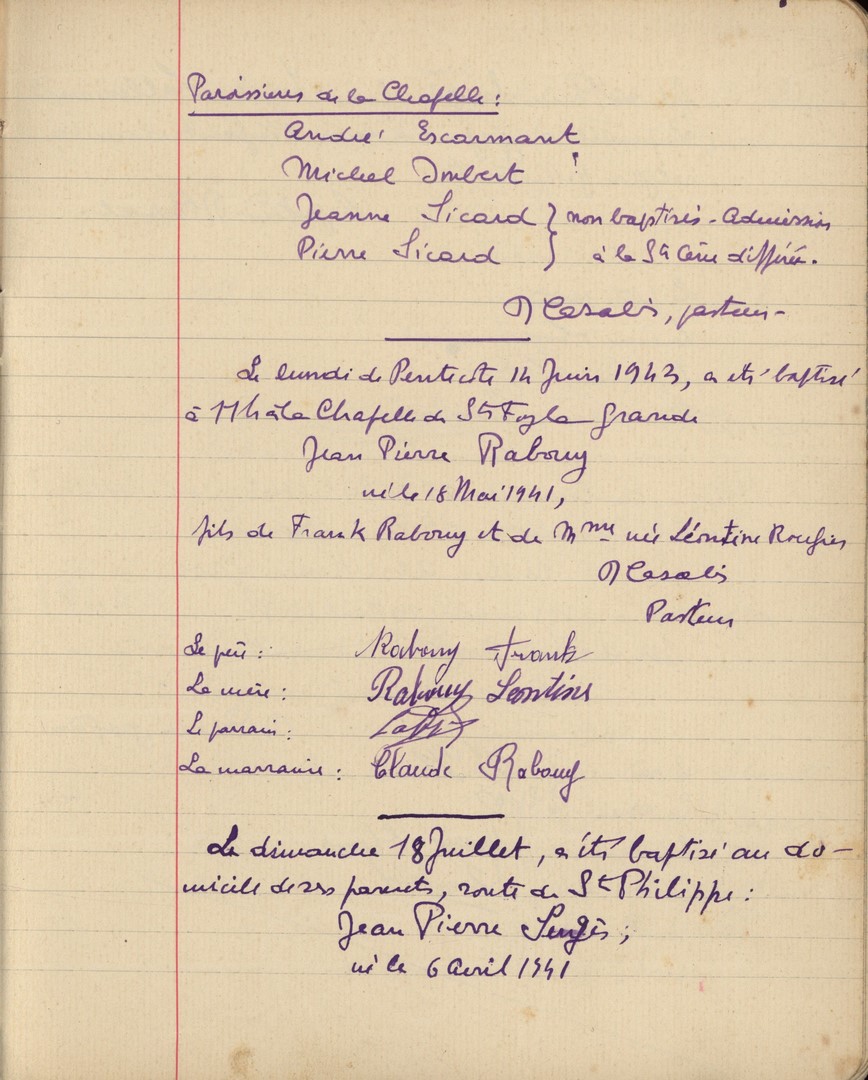 Paroissiens de la Chapelle :
André Escarmant
Michel Imbert !
Jeanne Sicard } non baptisés - Admission
Pierre Sicard } à la Ste Cène différée.
Casalis, pasteur -
Le lundi de Pentecôte 14 Juin 1943, a été baptisé
à 11h à la Chapelle de Ste Foy la Grande
Jean Pierre Rabouy
né le 18 Mai 1941,
fils de Frank Rabouy et de Mme née Léontine Rougier
Casalis
Pasteur
Le père : Rabouy Frank
La mère : Rabouy Leontine
Le parrain :
La marraine : Claude Rabouy
Le dimanche 18 Juillet, a été baptisé au do-
micile de ses parents, route de St Philippe :
Jean Pierre ;
né le 6 Avril 1941